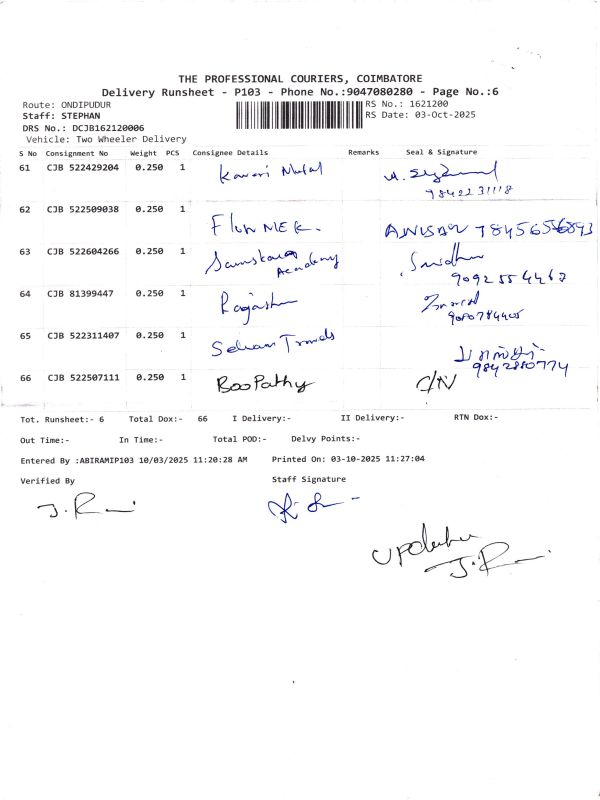 THE PROFESSIONAL COURIERS, COIMBATORE
Delivery Runsheet - P103 - Phone No.:9047080280 - Page No.:6
Route: ONDIPUDUR RS No.: 1621200
Staff: STEPHAN RS Date: 03-Oct-2025
DRS No.: DCJB162120006
Vehicle: Two Wheeler Delivery
S No Consignment No Weight PCS Consignee Details Remarks Seal & Signature
61 CJB 522429204 0.250 1 Kaveri
9842231118
62 CJB 522509038 0.250 1
63 CJB 522604266 0.250 1 Samskara Academy
9092554467
64 CJB 81399447 0.250 1
65 CJB 522311407 0.250 1
9842880774
66 CJB 522507111 0.250 1 BooPathy C/N
Tot. Runsheet:- 6 Total Dox:- 66 I Delivery:- II Delivery:- RTN Dox:-
Out Time:- In Time:- Total POD:- Delvy Points:-
Entered By :ABIRAMIP103 10/03/2025 11:20:28 AM Printed On: 03-10-2025 11:27:04
Verified By Staff Signature